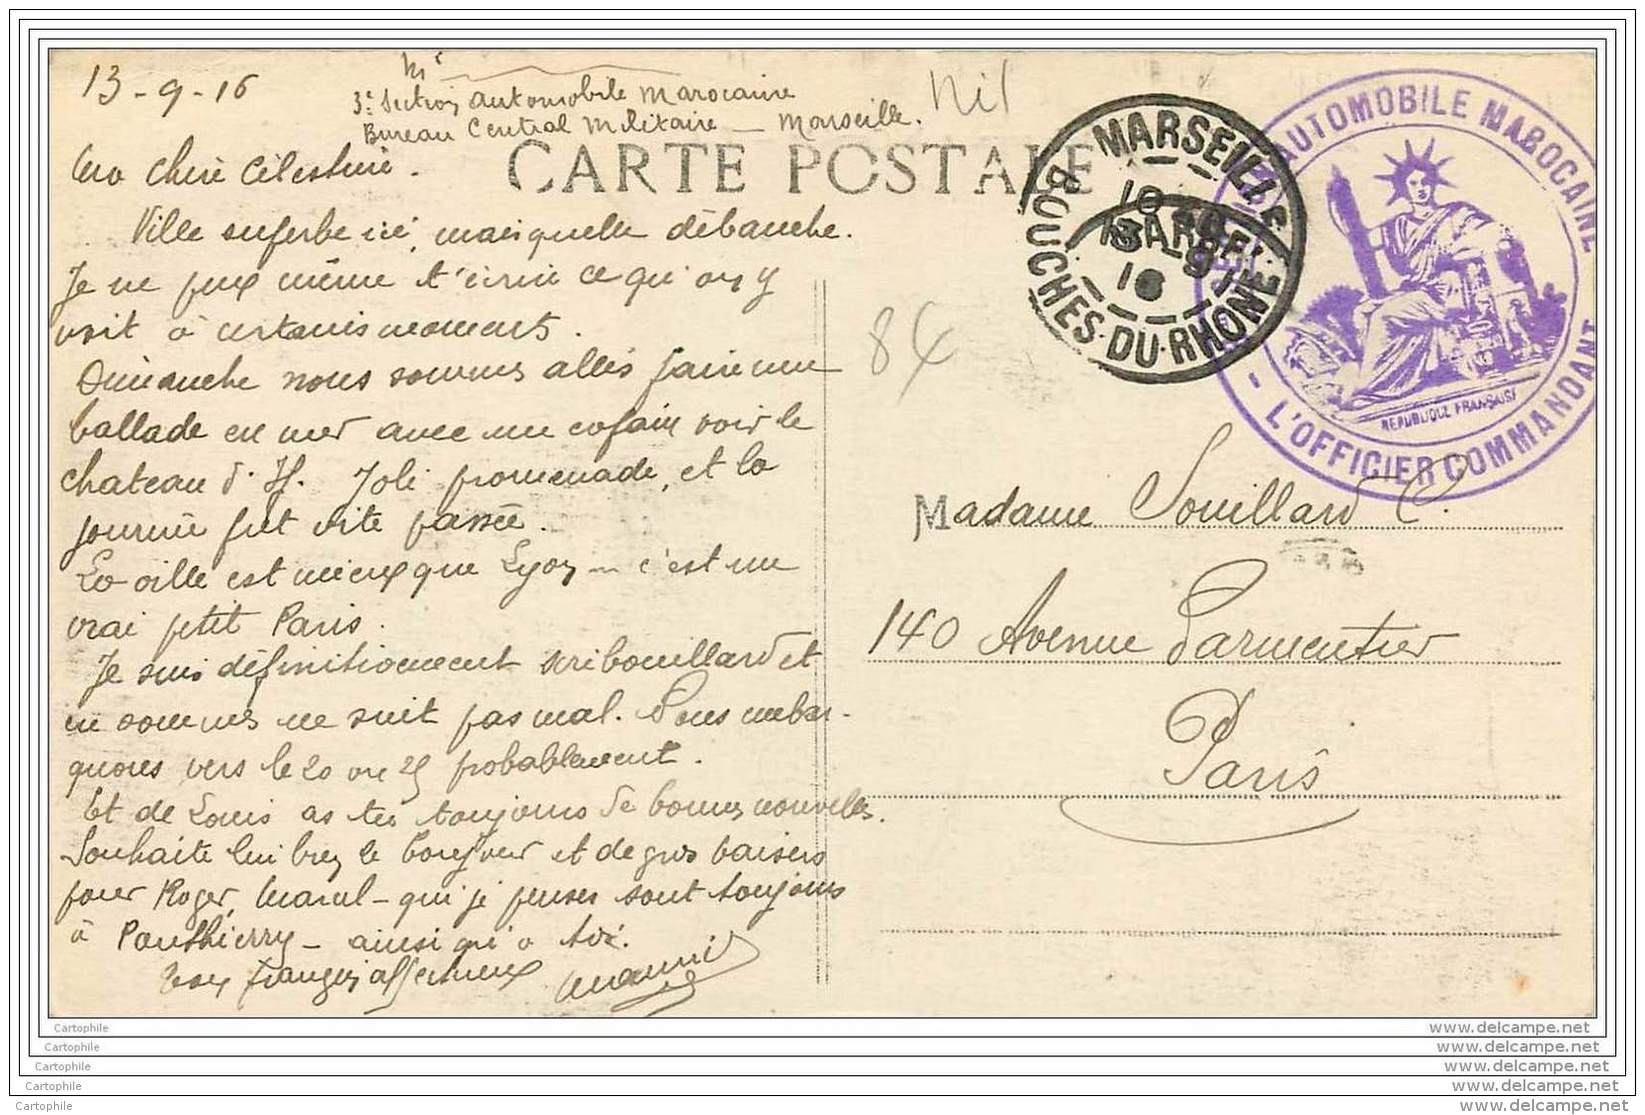 13-9-16
3e Section automobile Marocaine
Bureau Central Militaire — Marseille.
Nil
CARTE POSTALE
MARSEILLE
BOUCHES-DU-RHONE
AUTOMOBILE MAROCAINE
REPUBLIQUE FRANÇAISE
- L'OFFICIER COMMANDANT
Ma Chère Célestine.
Ville superbe ici, mais quelle débauche.
Je ne peux même t'écrire ce qu'on y
voit à certains moments.
Dimanche nous sommes allés faire une
ballade en mer avec un copain voir le
chateau d'If. Joli promenade, et la
journée fut vite passée.
La ville est mieux que Lyon — c'est un
vrai petit Paris.
Je suis définitivement scribouillard et
en sommes ne suit pas mal. Nous embar-
quons vers le 20 ou 25 probablement.
Et de Louis as tu toujours de bonnes nouvelles.
Souhaite lui bien le bonjour et de gros baisers
pour Roger, Marcel - qui je penses sont toujours
à Ponthierry - ainsi qu'a toi.
Ton frangin affectueux
84
Madame Souillard C.
140 Avenue Parmentier
Paris
Cartophile
Cartophile
Cartophile
Cartophile
Cartophile
www.delcampe.net
www.delcampe.net
www.delcampe.net
www.delcampe.net
www.delcampe.net